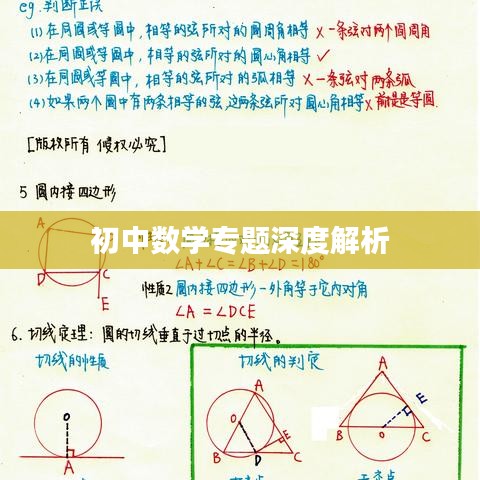 eg.判断正误
(1)在同圆或等圆中,相等的弦所对的圆周角相等 × 一条弦对两个圆周角
(2)在同圆或等圆中,相等的弦所对的圆心角相等 ✓
(3)在同圆或等圆中,相等的弦所对的弧相等 × 一条弦对两条弧
(4)如果两个圆中有两条相等的弦,这两条弦所对圆心角相等 × 前提是等圆.
[版权所有 侵权必究]
5 圆内接四边形
初中数学专题深度解析
A
D
C
E
∠A+∠C=∠B+∠D=180°
性质2 圆内接四边形一外角等于它内对角
∠A = ∠DCE
6. 切线定理: 圆的切线垂直于过切点的半径。
切线的性质
切线的判定
O
A
A
O
E
B
D
C
A
E
B
O
C